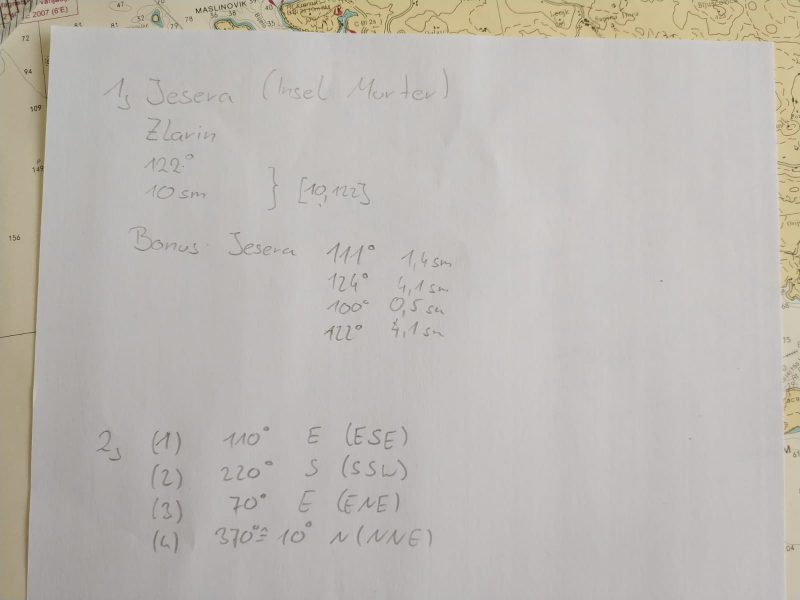 2007 (6'E)
MASLINOVIK
1, Jesera (Insel Murter)
Zlarin
122°
10 sm } [10,122]
Bonus Jesera 111° 1,4 sm
124° 4,1 sm
100° 0,5 sm
122° 4,1 sm
2, (1) 110° E (ESE)
(2) 220° S (SSW)
(3) 70° E (ENE)
(4) 370° ≙ 10° N (NNE)
72
94
109
149
156